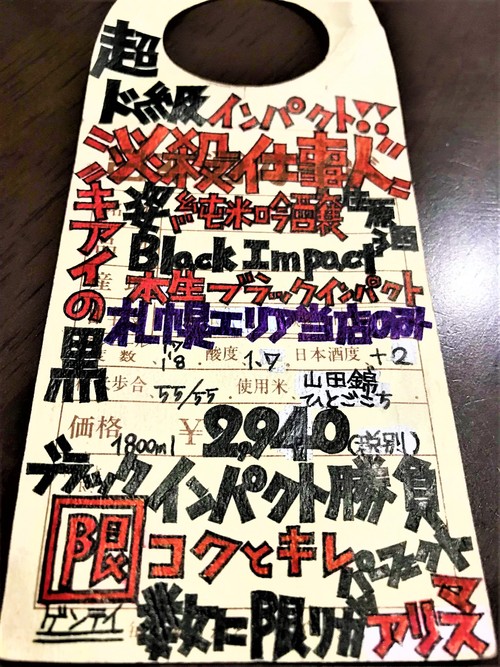 超
ド級 インパクト!!
"必殺仕事人"
キアイの黒
姿 純米吟醸 生原酒
Black Impact
本生ブラックインパクト
札幌エリア当店のみ
度数 17/18 酸度 1.7 日本酒度 +2
歩合 55/55 使用米 山田錦
ひとごこち
価格 1800ml ¥2,940(税別)
ブラックインパクト勝負
限 コクとキレ パーフェクト
ゲンテイ 数に限りが
アリマス